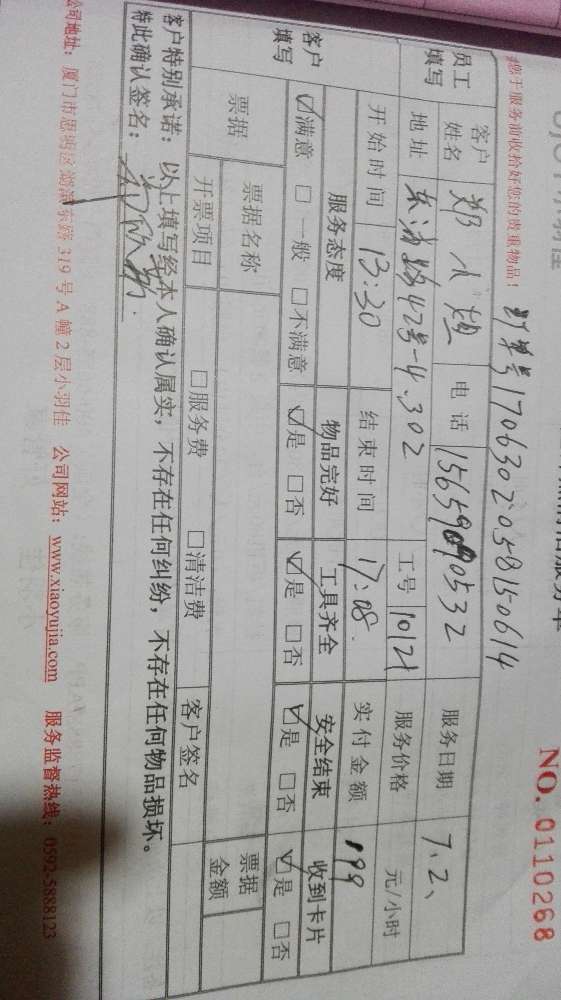 NO. 0110268
订单号1706302058150614
您于服务前收拾好您的贵重物品！
员工填写 客户姓名 郑 火 电话 15659090532 服务日期 7.2、
地址 东 路42号-4.302 工号 10121 服务价格 元/小时
开始时间 13:30 结束时间 17:08. 实付金额 199
客户填写 服务态度 物品完好 工具齐全 安全结束 收到卡片
☑满意 □一般 □不满意 ☑是 □否 ☑是 □否 ☑是 □否 ☑是 □否
票据 票据名称 票据金额
开票项目 □服务费 □清洁费 客户签名
客户特别承诺：以上填写经本人确认属实，不存在任何纠纷，不存在任何物品损坏。
特此确认签名：
公司地址：厦门市思明区湖滨东路319号A幢2层小羽佳 公司网站：www.xiaoyujia.com 服务监督热线：0592-5888123